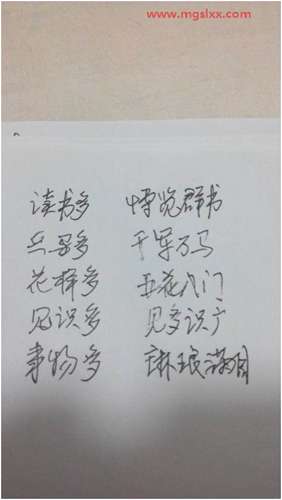 www.mgslxx.com
读书多 博览群书
兵马多 千军万马
花样多 五花八门
见识多 见多识广
事物多 琳琅满目